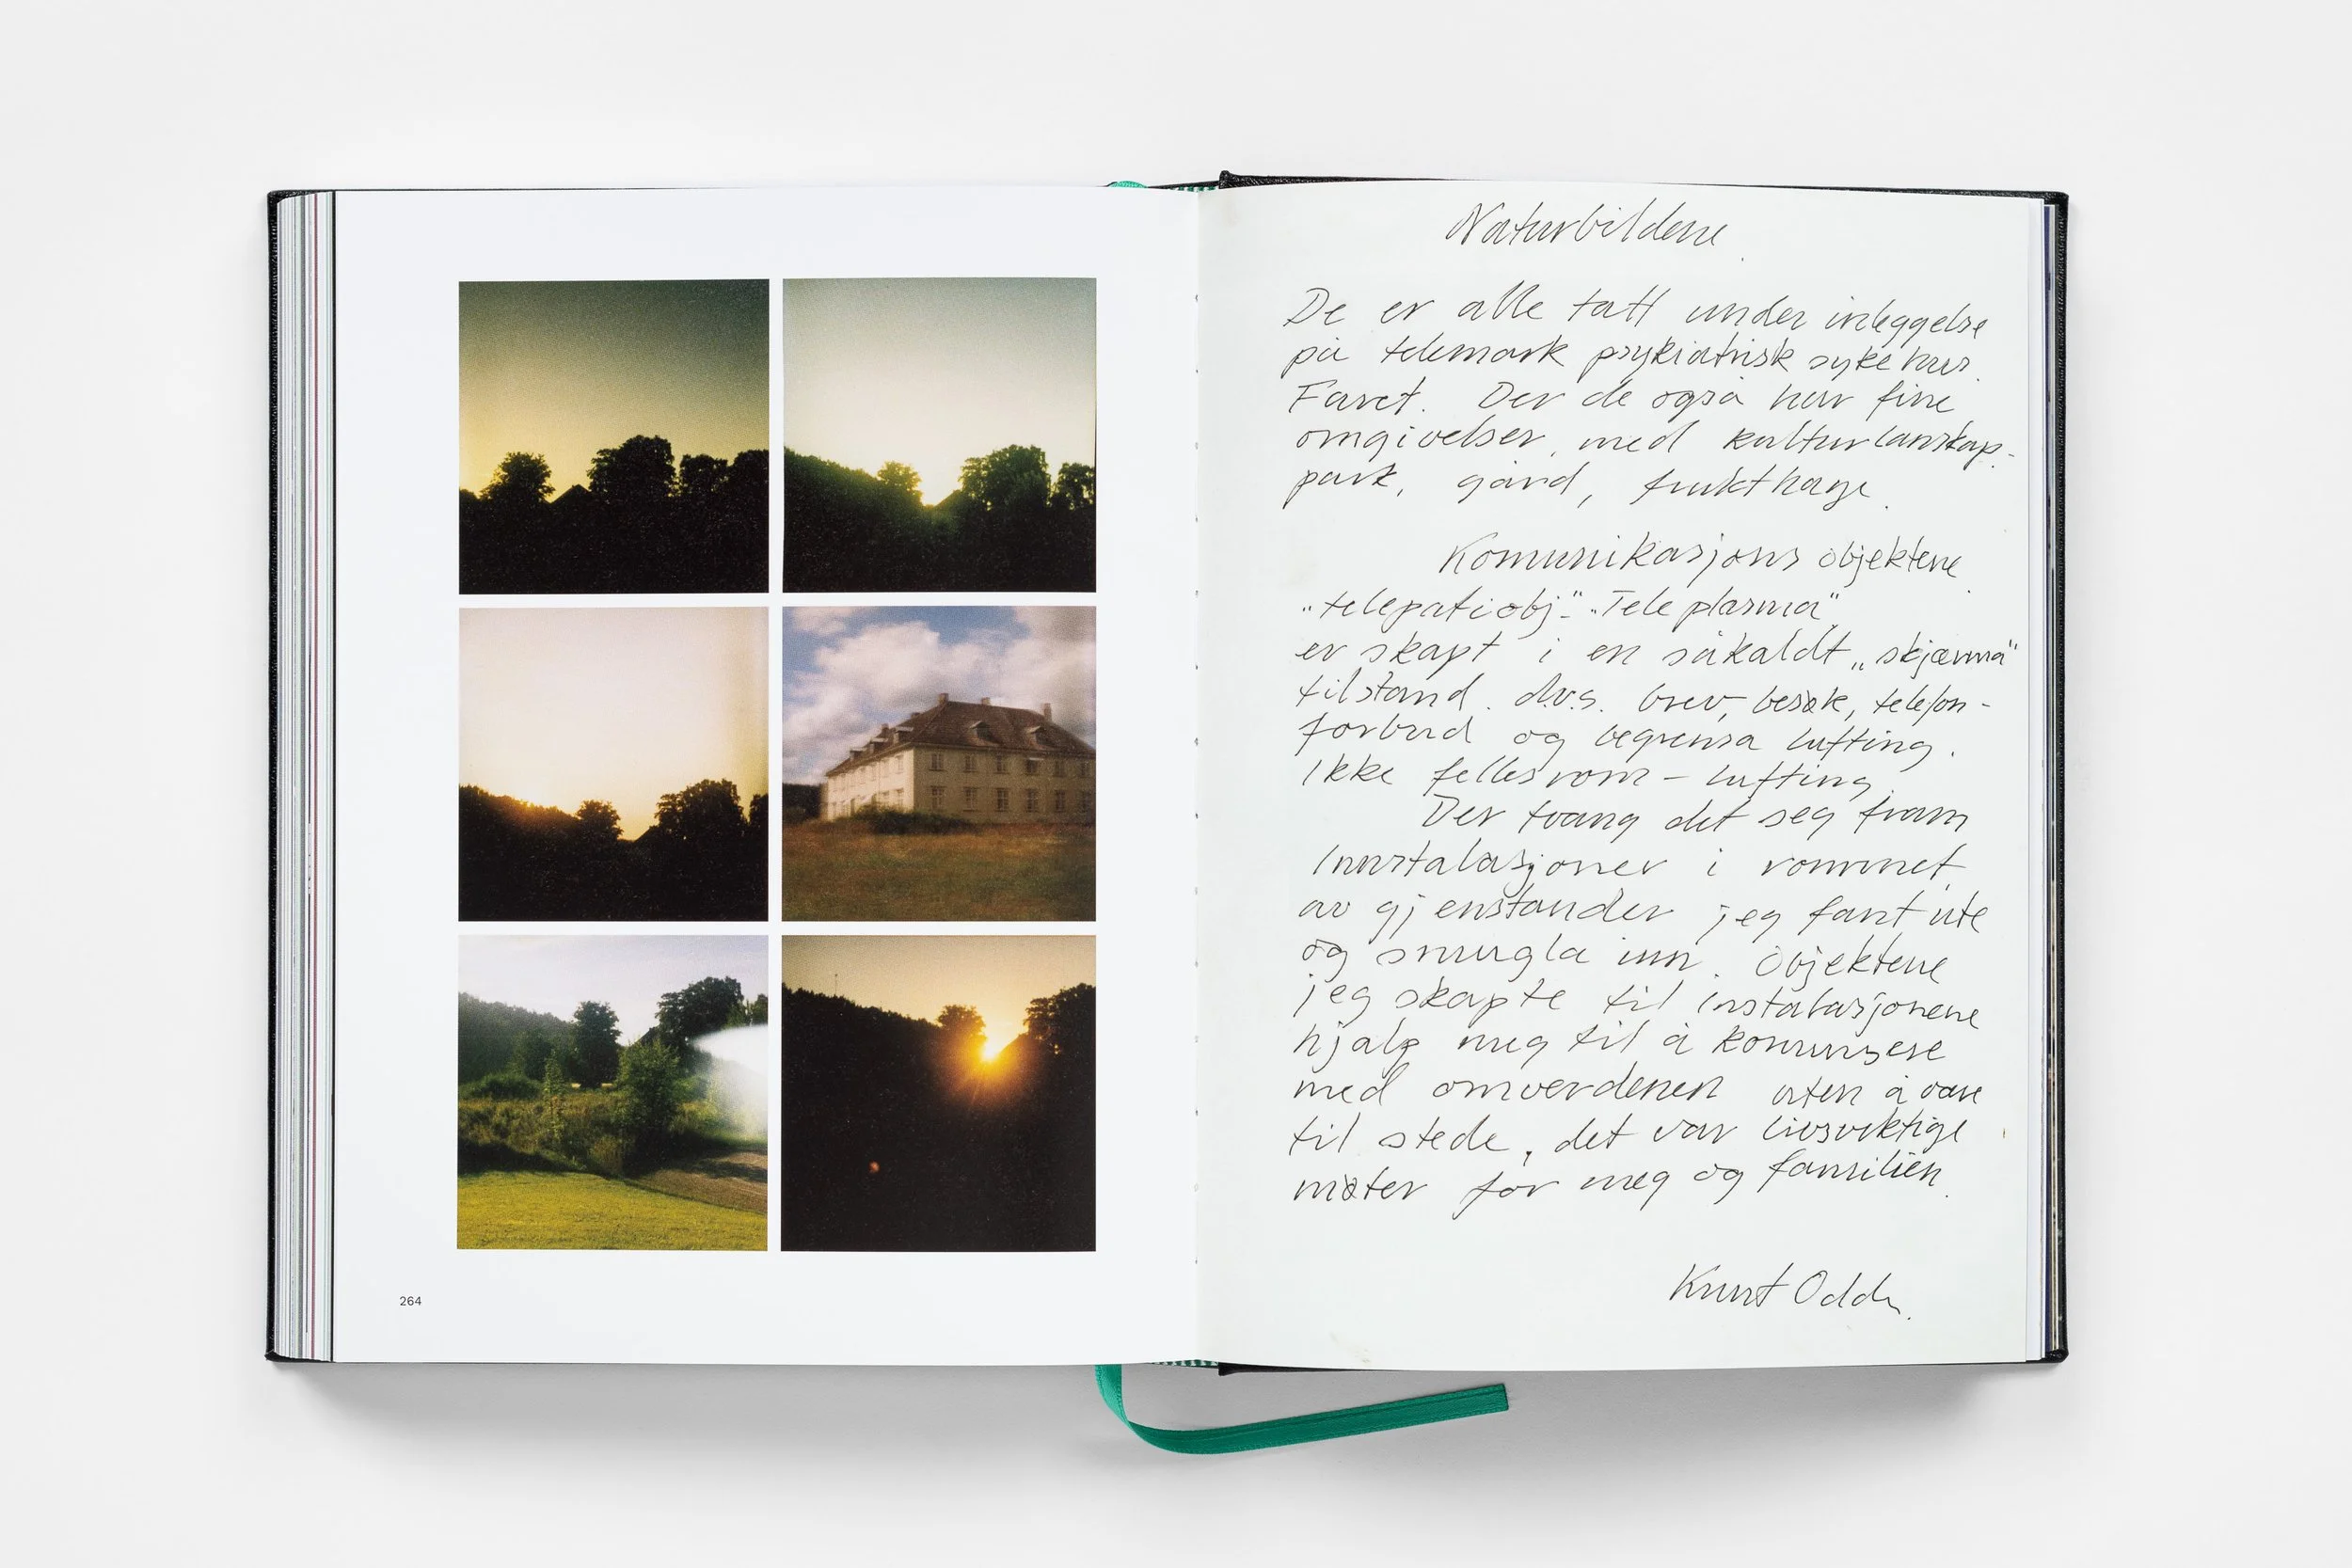 264
Naturbildene
De er alle tatt under inleggelse
på telemark psykiatrisk sykehus.
Faret. Der de også har fine
omgivelser, med kulturlanskap-
park, gård, frukthage.
Komunikasjons objektene
"telepatiobj-" "Teleplasma"
er skapt i en såkaldt „skjærma"
tilstand. d.v.s. brev, besøk, telefon-
forbud og begrensa lufting.
Ikke fellesrom - lufting.
Der tvang det seg fram
Innstalasjoner i rommet,
av gjenstander jeg fant ute
og smugla inn. Objektene
jeg skapte til instalasjonene
hjalp meg til å
med omverdenen uten å være
til stede, det var livsviktige
møter for meg og familien.
Kurt Odd